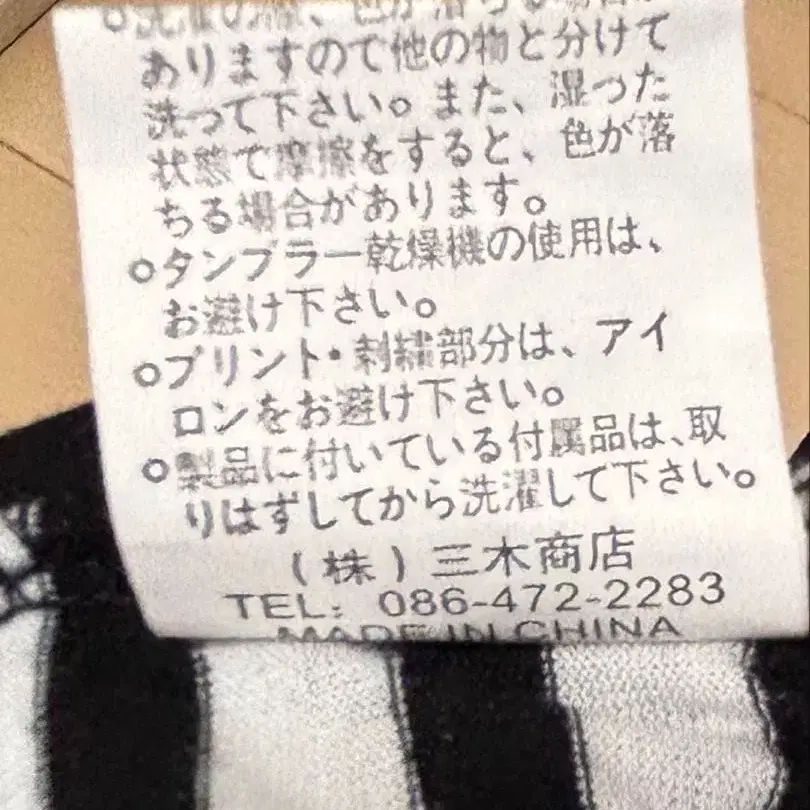 ○洗濯の際、色が落ちる場合が
ありますので他の物と分けて
洗って下さい。また、湿った
状態で摩擦をすると、色が落
ちる場合があります。
○タンブラー乾燥機の使用は、
お避け下さい。
○プリント・刺繍部分は、アイ
ロンをお避け下さい。
○製品に付いている付属品は、取
りはずしてから洗濯して下さい。
(株)三木商店
TEL: 086-472-2283
MADE IN CHINA